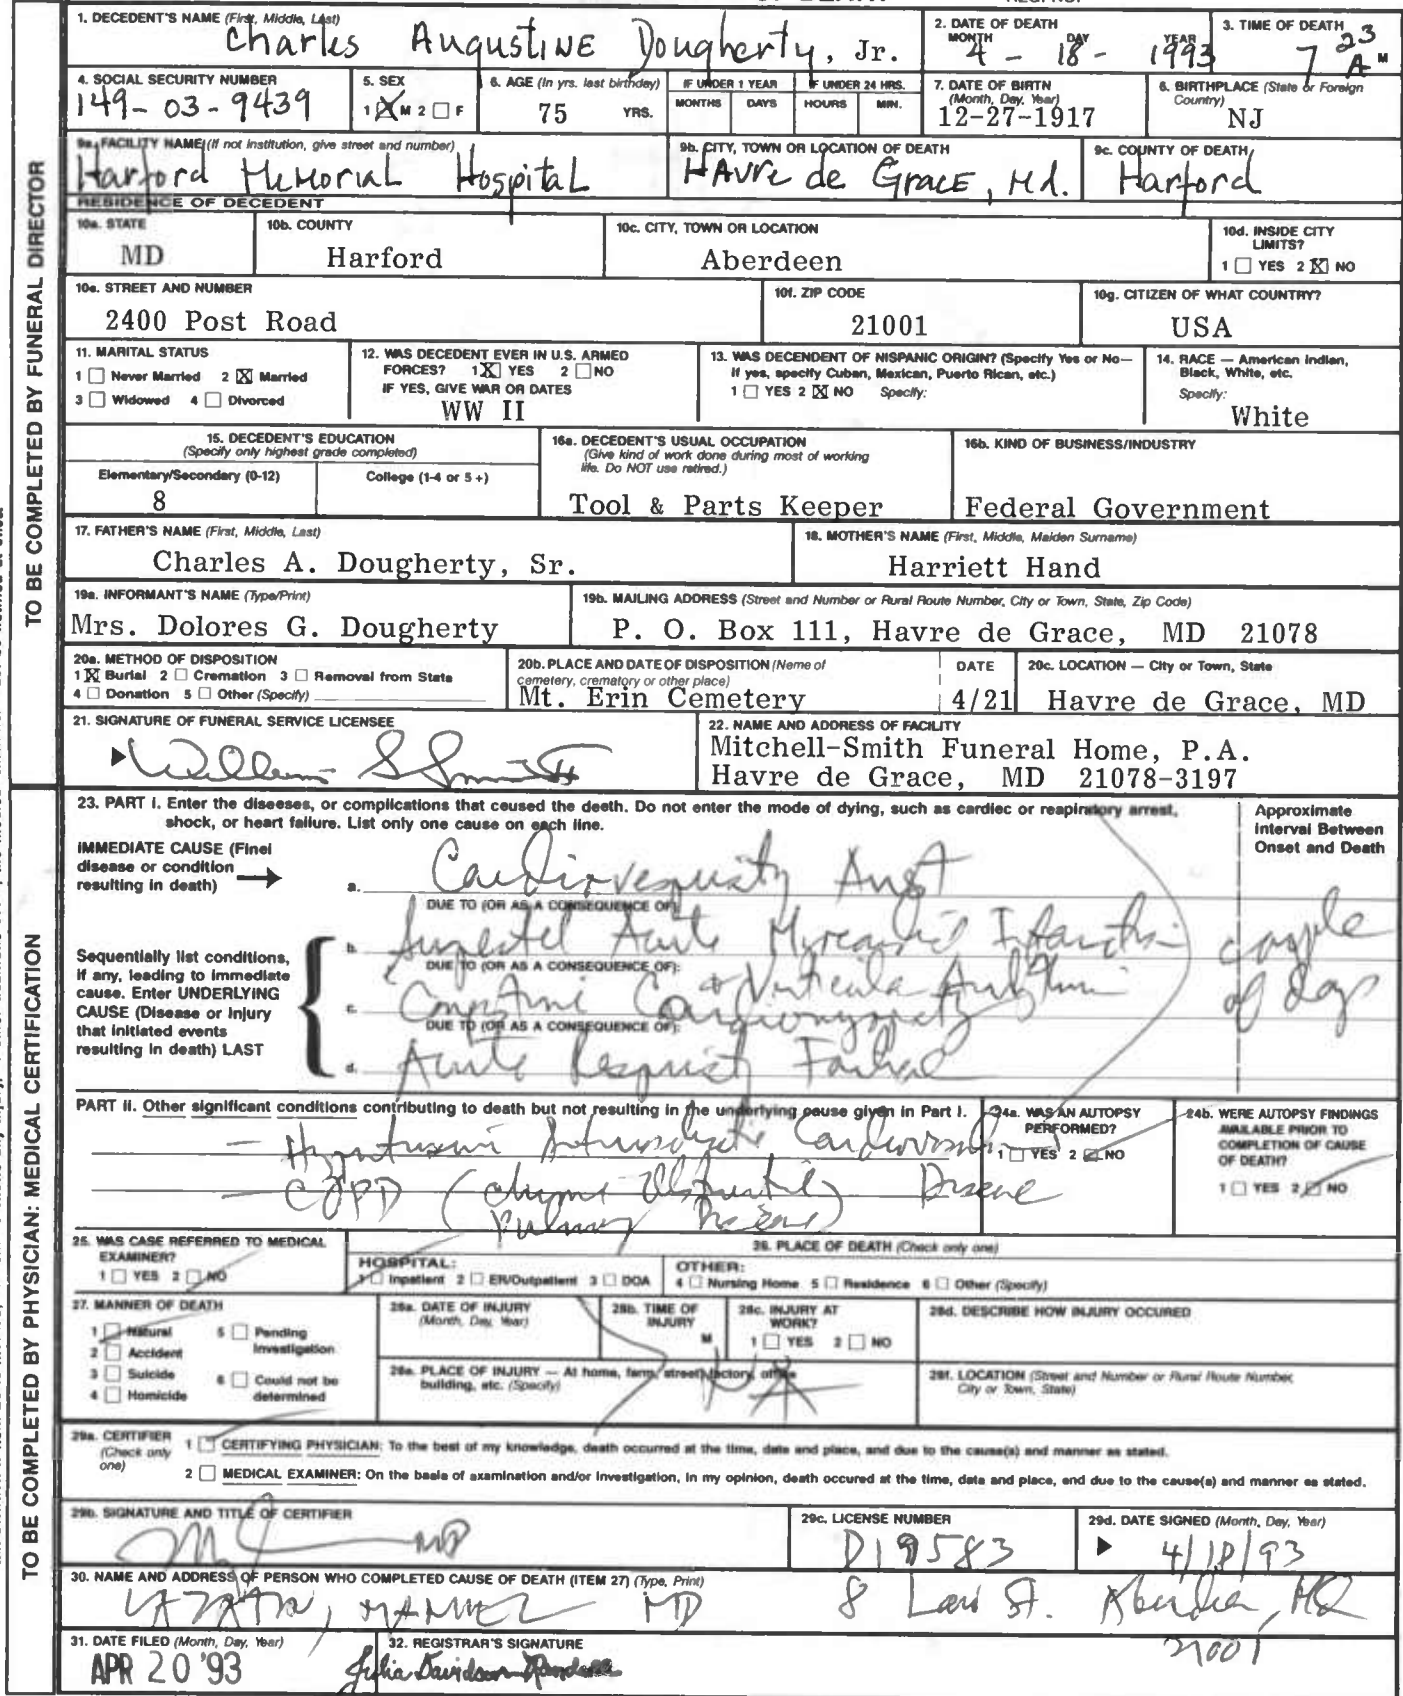 1. DECEDENT'S NAME (First, Middle, Last)
Charles Augustine Dougherty, Jr.
2. DATE OF DEATH
MONTH DAY YEAR
4 - 18 - 1993
3. TIME OF DEATH
7 23 A M
4. SOCIAL SECURITY NUMBER
149-03-9439
5. SEX
1 ☒ M 2 ☐ F
6. AGE (In yrs. last birthday)
75 YRS.
IF UNDER 1 YEAR
MONTHS DAYS
IF UNDER 24 HRS.
HOURS MIN.
7. DATE OF BIRTN
(Month, Day, Year)
12-27-1917
6. BIRTHPLACE (State or Foreign
Country)
NJ
9a. FACILITY NAME (If not institution, give street and number)
Harford Memorial Hospital
9b. CITY, TOWN OR LOCATION OF DEATH
HAvre de GracE, Md.
9c. COUNTY OF DEATH
Harford
RESIDENCE OF DECEDENT
10a. STATE
MD
10b. COUNTY
Harford
10c. CITY, TOWN OR LOCATION
Aberdeen
10d. INSIDE CITY
LIMITS?
1 ☐ YES 2 ☒ NO
10e. STREET AND NUMBER
2400 Post Road
10f. ZIP CODE
21001
10g. CITIZEN OF WHAT COUNTRY?
USA
11. MARITAL STATUS
1 ☐ Never Married 2 ☒ Married
3 ☐ Widowed 4 ☐ Divorced
12. WAS DECEDENT EVER IN U.S. ARMED
FORCES? 1 ☒ YES 2 ☐ NO
IF YES, GIVE WAR OR DATES
WW II
13. WAS DECENDENT OF NISPANIC ORIGIN? (Specify Yes or No—
If yes, specify Cuban, Mexican, Puerto Rican, etc.)
1 ☐ YES 2 ☒ NO Specify:
14. RACE — American Indian,
Black, White, etc.
Specify:
White
15. DECEDENT'S EDUCATION
(Specify only highest grade completed)
Elementary/Secondary (0-12)
8
College (1-4 or 5+)
16a. DECEDENT'S USUAL OCCUPATION
(Give kind of work done during most of working
life. Do NOT use retired.)
Tool & Parts Keeper
16b. KIND OF BUSINESS/INDUSTRY
Federal Government
17. FATHER'S NAME (First, Middle, Last)
Charles A. Dougherty, Sr.
18. MOTHER'S NAME (First, Middle, Maiden Surname)
Harriett Hand
19a. INFORMANT'S NAME (Type/Print)
Mrs. Dolores G. Dougherty
19b. MAILING ADDRESS (Street and Number or Rural Route Number, City or Town, State, Zip Code)
P. O. Box 111, Havre de Grace, MD 21078
20a. METHOD OF DISPOSITION
1 ☒ Burial 2 ☐ Cremation 3 ☐ Removal from State
4 ☐ Donation 5 ☐ Other (Specify)
20b. PLACE AND DATE OF DISPOSITION (Name of
cemetery, crematory or other place)
Mt. Erin Cemetery
DATE
4/21
20c. LOCATION — City or Town, State
Havre de Grace, MD
21. SIGNATURE OF FUNERAL SERVICE LICENSEE
William S Smith
22. NAME AND ADDRESS OF FACILITY
Mitchell-Smith Funeral Home, P.A.
Havre de Grace, MD 21078-3197
TO BE COMPLETED BY FUNERAL DIRECTOR
23. PART I. Enter the diseases, or complications that ceused the deeth. Do not enter the mode of dying, such as cardiec or reapiratory arrest,
shock, or heart failure. List only one cause on each line.
Approximate
Interval Between
Onset and Death
IMMEDIATE CAUSE (Finel
disease or condition
resulting in death)
a. Cardiorespiratory Arrest
DUE TO (OR AS A CONSEQUENCE OF):
Sequentially list conditions,
if any, leading to immediate
cause. Enter UNDERLYING
CAUSE (Disease or injury
that initiated events
resulting in death) LAST
b. Suspected Acute Myocardial Infarction couple
DUE TO (OR AS A CONSEQUENCE OF):
+ Ventricular Arrhythmia of days
c. Congestive Cardiomyopathy
DUE TO (OR AS A CONSEQUENCE OF):
d. Acute Respiratory Failure
PART II. Other significant conditions contributing to death but not resulting in the underlying cause given in Part I.
- Hypertensive Arteriosclerotic Cardiovascular
Disease
- COPD (chronic Obstructive
Pulmonary Disease)
24a. WAS AN AUTOPSY
PERFORMED?
1 ☐ YES 2 ☑ NO
24b. WERE AUTOPSY FINDINGS
AVAILABLE PRIOR TO
COMPLETION OF CAUSE
OF DEATH?
1 ☐ YES 2 ☑ NO
25. WAS CASE REFERRED TO MEDICAL
EXAMINER?
1 ☐ YES 2 ☑ NO
26. PLACE OF DEATH (Check only one)
HOSPITAL:
1 ☑ Inpatient 2 ☐ ER/Outpatient 3 ☐ DOA
OTHER:
4 ☐ Nursing Home 5 ☐ Residence 6 ☐ Other (Specify)
27. MANNER OF DEATH
1 ☑ Natural 5 ☐ Pending
Investigation
2 ☐ Accident
3 ☐ Suicide 6 ☐ Could not be
determined
4 ☐ Homicide
28a. DATE OF INJURY
(Month, Day, Year)
28b. TIME OF
INJURY
M
28c. INJURY AT
WORK?
1 ☐ YES 2 ☐ NO
28d. DESCRIBE HOW INJURY OCCURED
28e. PLACE OF INJURY — At home, farm, street, factory, office
building, etc. (Specify)
NA
28f. LOCATION (Street and Number or Rural Route Number,
City or Town, State)
29a. CERTIFIER
(Check only
one)
1 ☑ CERTIFYING PHYSICIAN: To the best of my knowledge, death occurred at the time, date and place, and due to the cause(s) and manner as stated.
2 ☐ MEDICAL EXAMINER: On the basis of examination and/or investigation, in my opinion, death occured at the time, data and place, end due to the cause(a) and manner es stated.
29b. SIGNATURE AND TITLE OF CERTIFIER
MD
29c. LICENSE NUMBER
D19583
29d. DATE SIGNED (Month, Day, Year)
4/18/93
30. NAME AND ADDRESS OF PERSON WHO COMPLETED CAUSE OF DEATH (ITEM 27) (Type, Print)
LAZATIN, MANUEL MD 8 Law St. Aberdeen, MD
21001
31. DATE FILED (Month, Day, Year)
APR 20 '93
32. REGISTRAR'S SIGNATURE
Julia Davidson-Randall
TO BE COMPLETED BY PHYSICIAN: MEDICAL CERTIFICATION